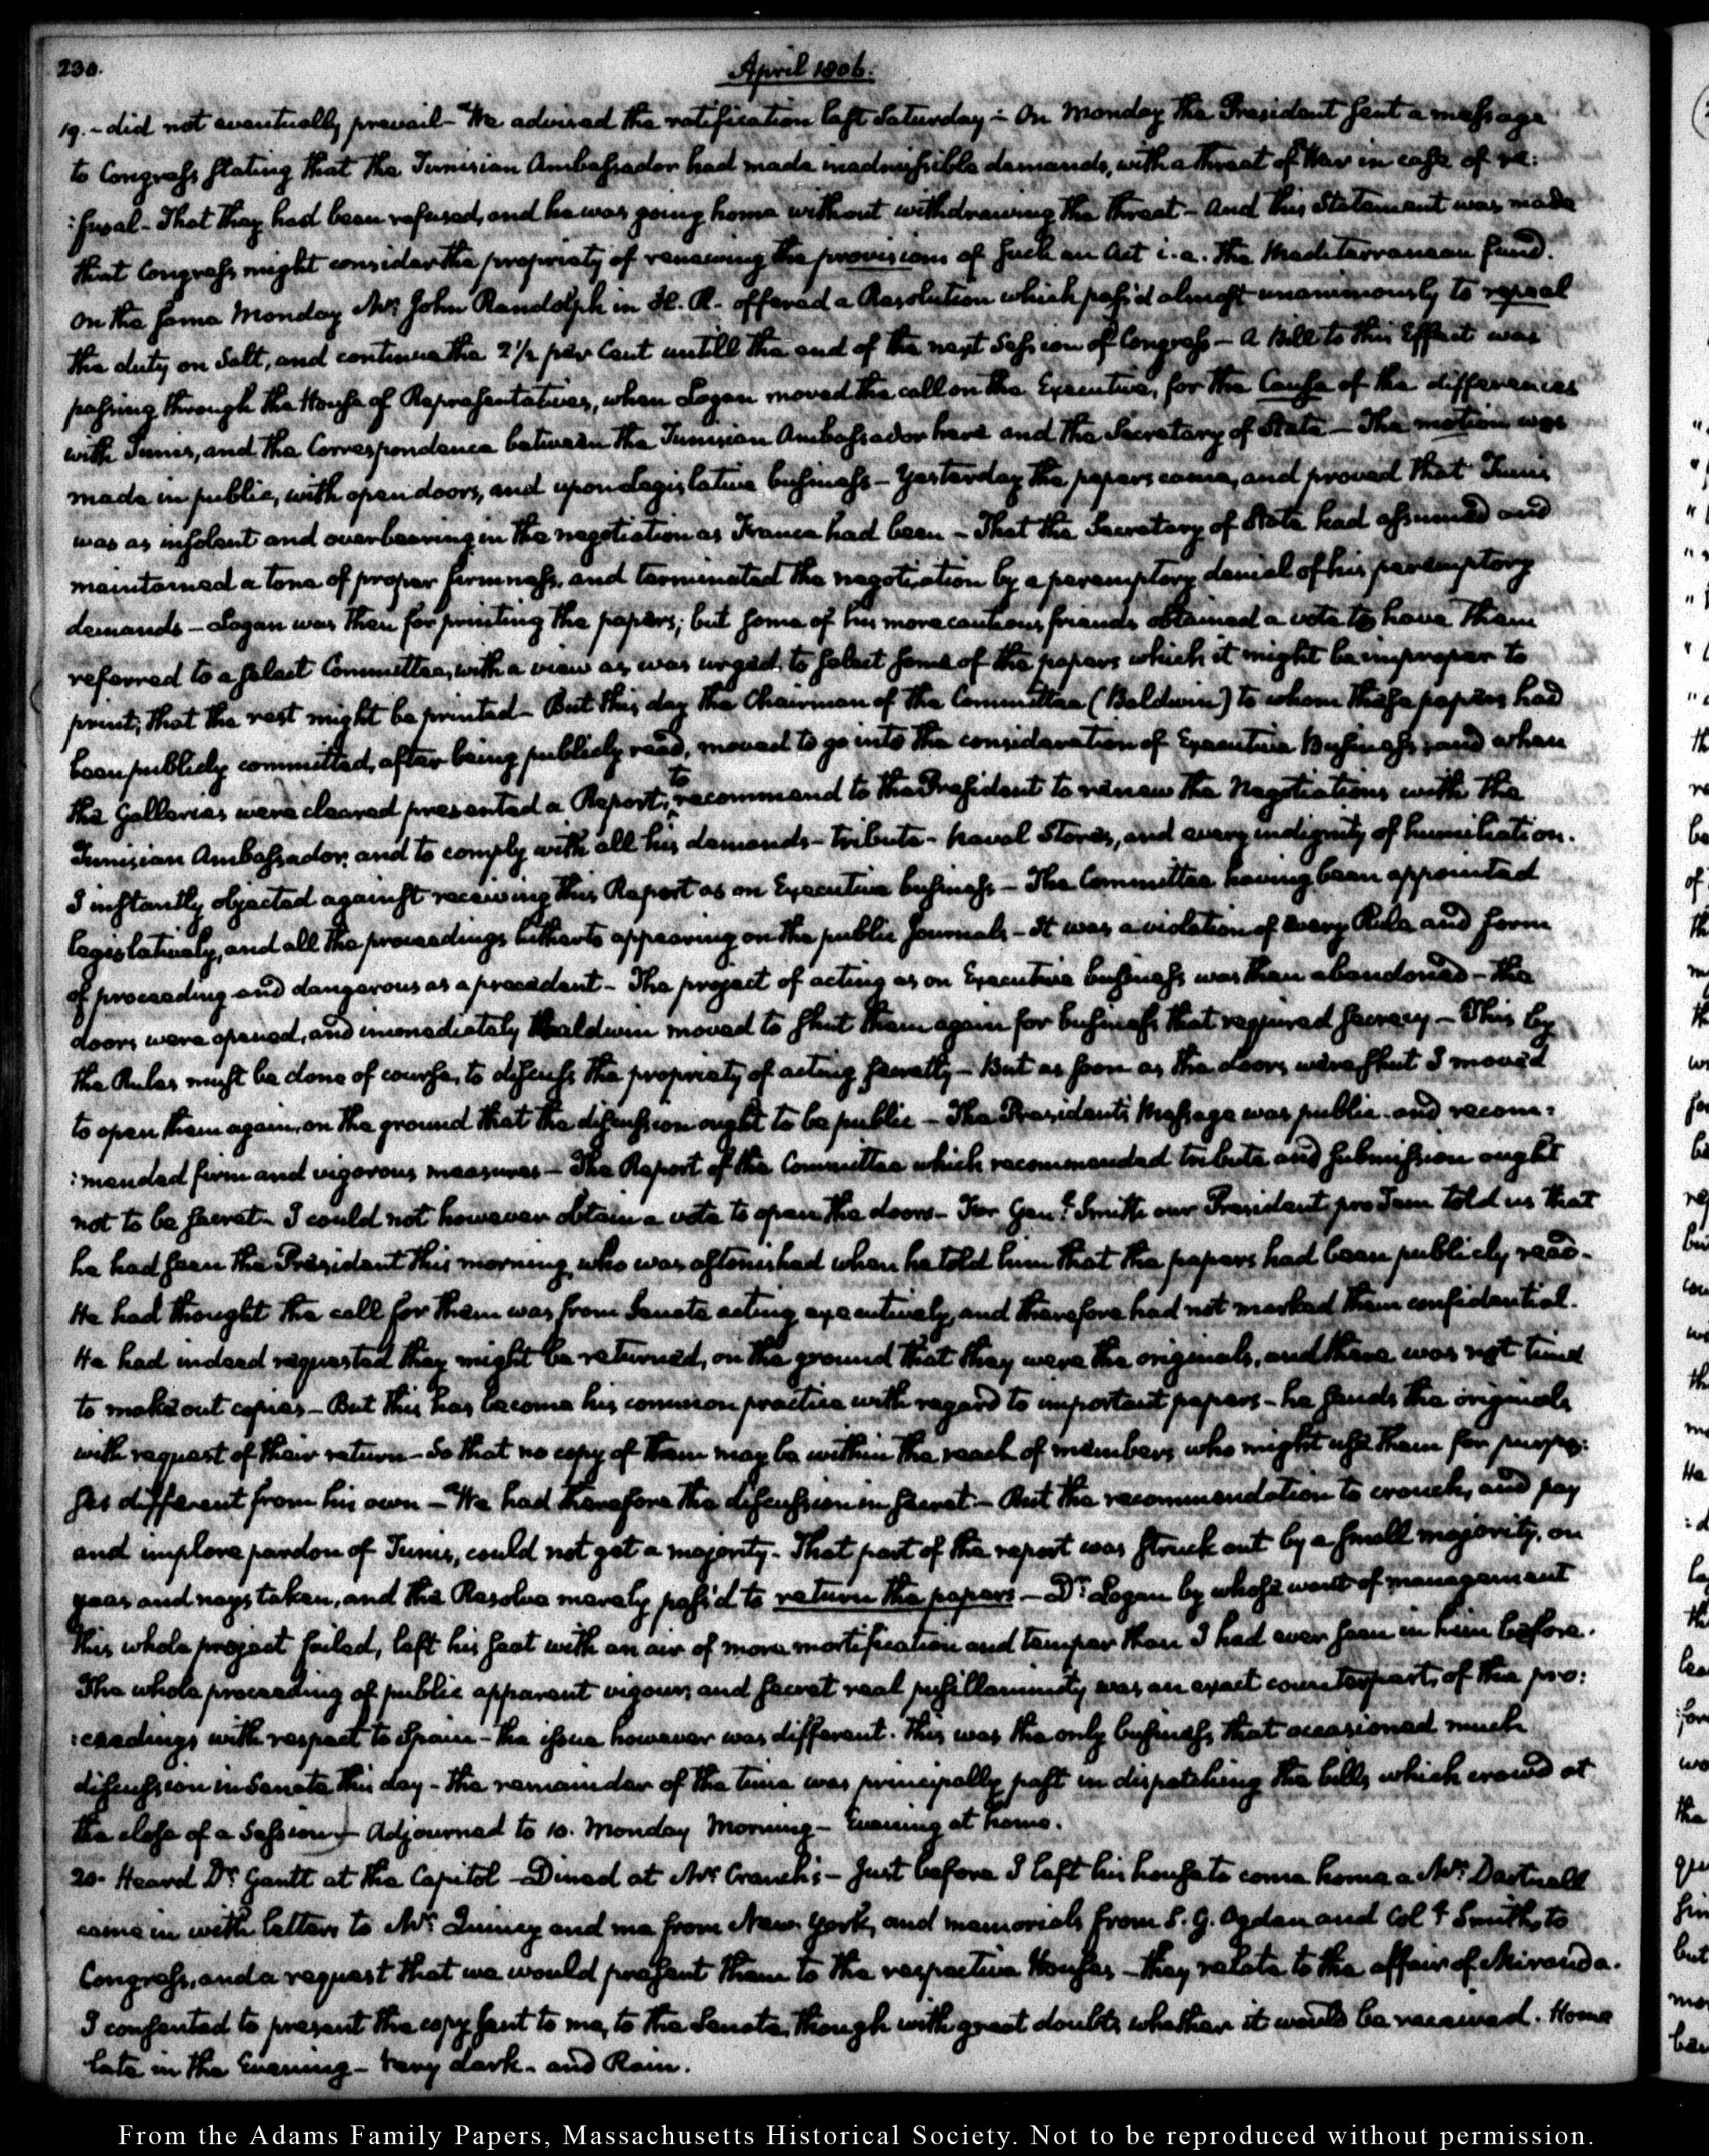 230.
April 1806.
19. - did not eventually prevail - We advised the ratification last Saturday - On Monday the President sent a message
to Congress stating that the Tunisian Ambassador had made inadmissible demands, with a threat of War in case of re:
:fusal - That they had been refused, and he was going home without withdrawing the threat - And this Statement was made
that Congress might consider the propriety of renewing the provisions of such an Act i.e. the Mediterranean fund.
On the same Monday Mr. John Randolph in H. R. offered a Resolution which pass'd almost unanimously to repeal
the duty on Salt, and continue the 2 1/2 per Cent untill the end of the next Session of Congress - A Bill to this Effect was
passing through the House of Representatives, when Logan moved the call on the Executive, for the Cause of the differences
with Tunis, and the Correspondence between the Tunisian Ambassador here and the Secretary of State - The motion was
made in public, with open doors, and upon Legislative business - Yesterday the papers came, and proved that Tunis
was as insolent and overbearing in the negotiation as France had been - That the Secretary of State had assumed and
maintained a tone of proper firmness, and terminated the negotiation by a peremptory denial of his peremptory
demands - Logan was then for printing the papers; but some of his more cautious friends obtained a vote to have them
referred to a select Committee, with a view as was urged, to select some of the papers which it might be improper to
print; that the rest might be printed - But this day the Chairman of the Committee (Baldwin) to whom these papers had
been publicly committed, after being publicly read, moved to go into the consideration of Executive Business; and when
the Galleries were cleared presented a Report, to recommend to the President to renew the Negotiations with the
Tunisian Ambassador, and to comply with all his demands - tribute - naval Stores, and every indignity of humiliation.
I instantly objected against receiving this Report as on Executive business - The Committee having been appointed
legislatively, and all the proceedings hitherto appearing on the public Journals - It was a violation of every Rule and form
of proceeding and dangerous as a precedent - The project of acting as on Executive business was then abandoned - the
doors were opened, and immediately Baldwin moved to shut them again for business that required secrecy - This by
the Rules must be done of course, to discuss the propriety of acting secretly - But as soon as the doors were shut I moved
to open them again, on the ground that the discussion ought to be public - The President's Message was public - and recom:
:mended firm and vigorous measures - The Report of the Committee which recommended tribute and submission ought
not to be secret - I could not however obtain a vote to open the doors - For Genl. Smith our President pro Tem told us that
he had seen the President this morning, who was astonished when he told him that the papers had been publicly read -
He had thought the call for them was from Senate acting executively, and therefore had not marked them confidential.
He had indeed requested they might be returned, on the ground that they were the originals, and there was not time
to make out copies - But this has become his common practice with regard to important papers - he sends the originals
with request of their return - So that no copy of them may be within the reach of members who might use them for purpo:
ses different from his own - We had therefore the discussion in secret - But the recommendation to crouch, and pay
and implore pardon of Tunis, could not get a majority - That part of the report was struck out by a small majority, on
yeas and nays taken, and the Resolve merely pass'd to return the papers - Dr. Logan by whose want of management
this whole project failed, left his seat with an air of more mortification and temper than I had ever seen in him before.
The whole proceeding of public apparent vigour, and secret real pusillanimity was an exact counterpart, of the pro:
:ceedings with respect to Spain - the issue however was different. This was the only business that occasioned much
discussion in Senate this day - the remainder of the time was principally past in dispatching the bills which crowd at
the close of a Session - Adjourned to 10. Monday Morning - Evening at home.
20. Heard Dr. Gantt at the Capitol - Dined at Mr. Cranch's - Just before I left his house to come home a Mr. Dartnell
came in with letters to Mr. Quincy and me from New York, and memorials from S. G. Ogden and Col. Smith, to
Congress, and a request that we would present them to the respective Houses - they relate to the affair of Miranda.
I consented to present the copy sent to me, to the Senate, though with great doubts whether it would be received. Home
late in the Evening - Very dark - and Rain.
From the Adams Family Papers, Massachusetts Historical Society. Not to be reproduced without permission.